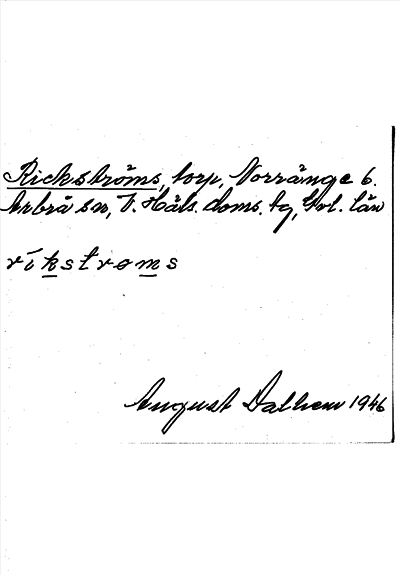 Rickströms, torp, Norränge 6.
Arbrå sn, V. Häls. doms. tg, Gvl. län
ríkstrɵms
August Dalhem 1946